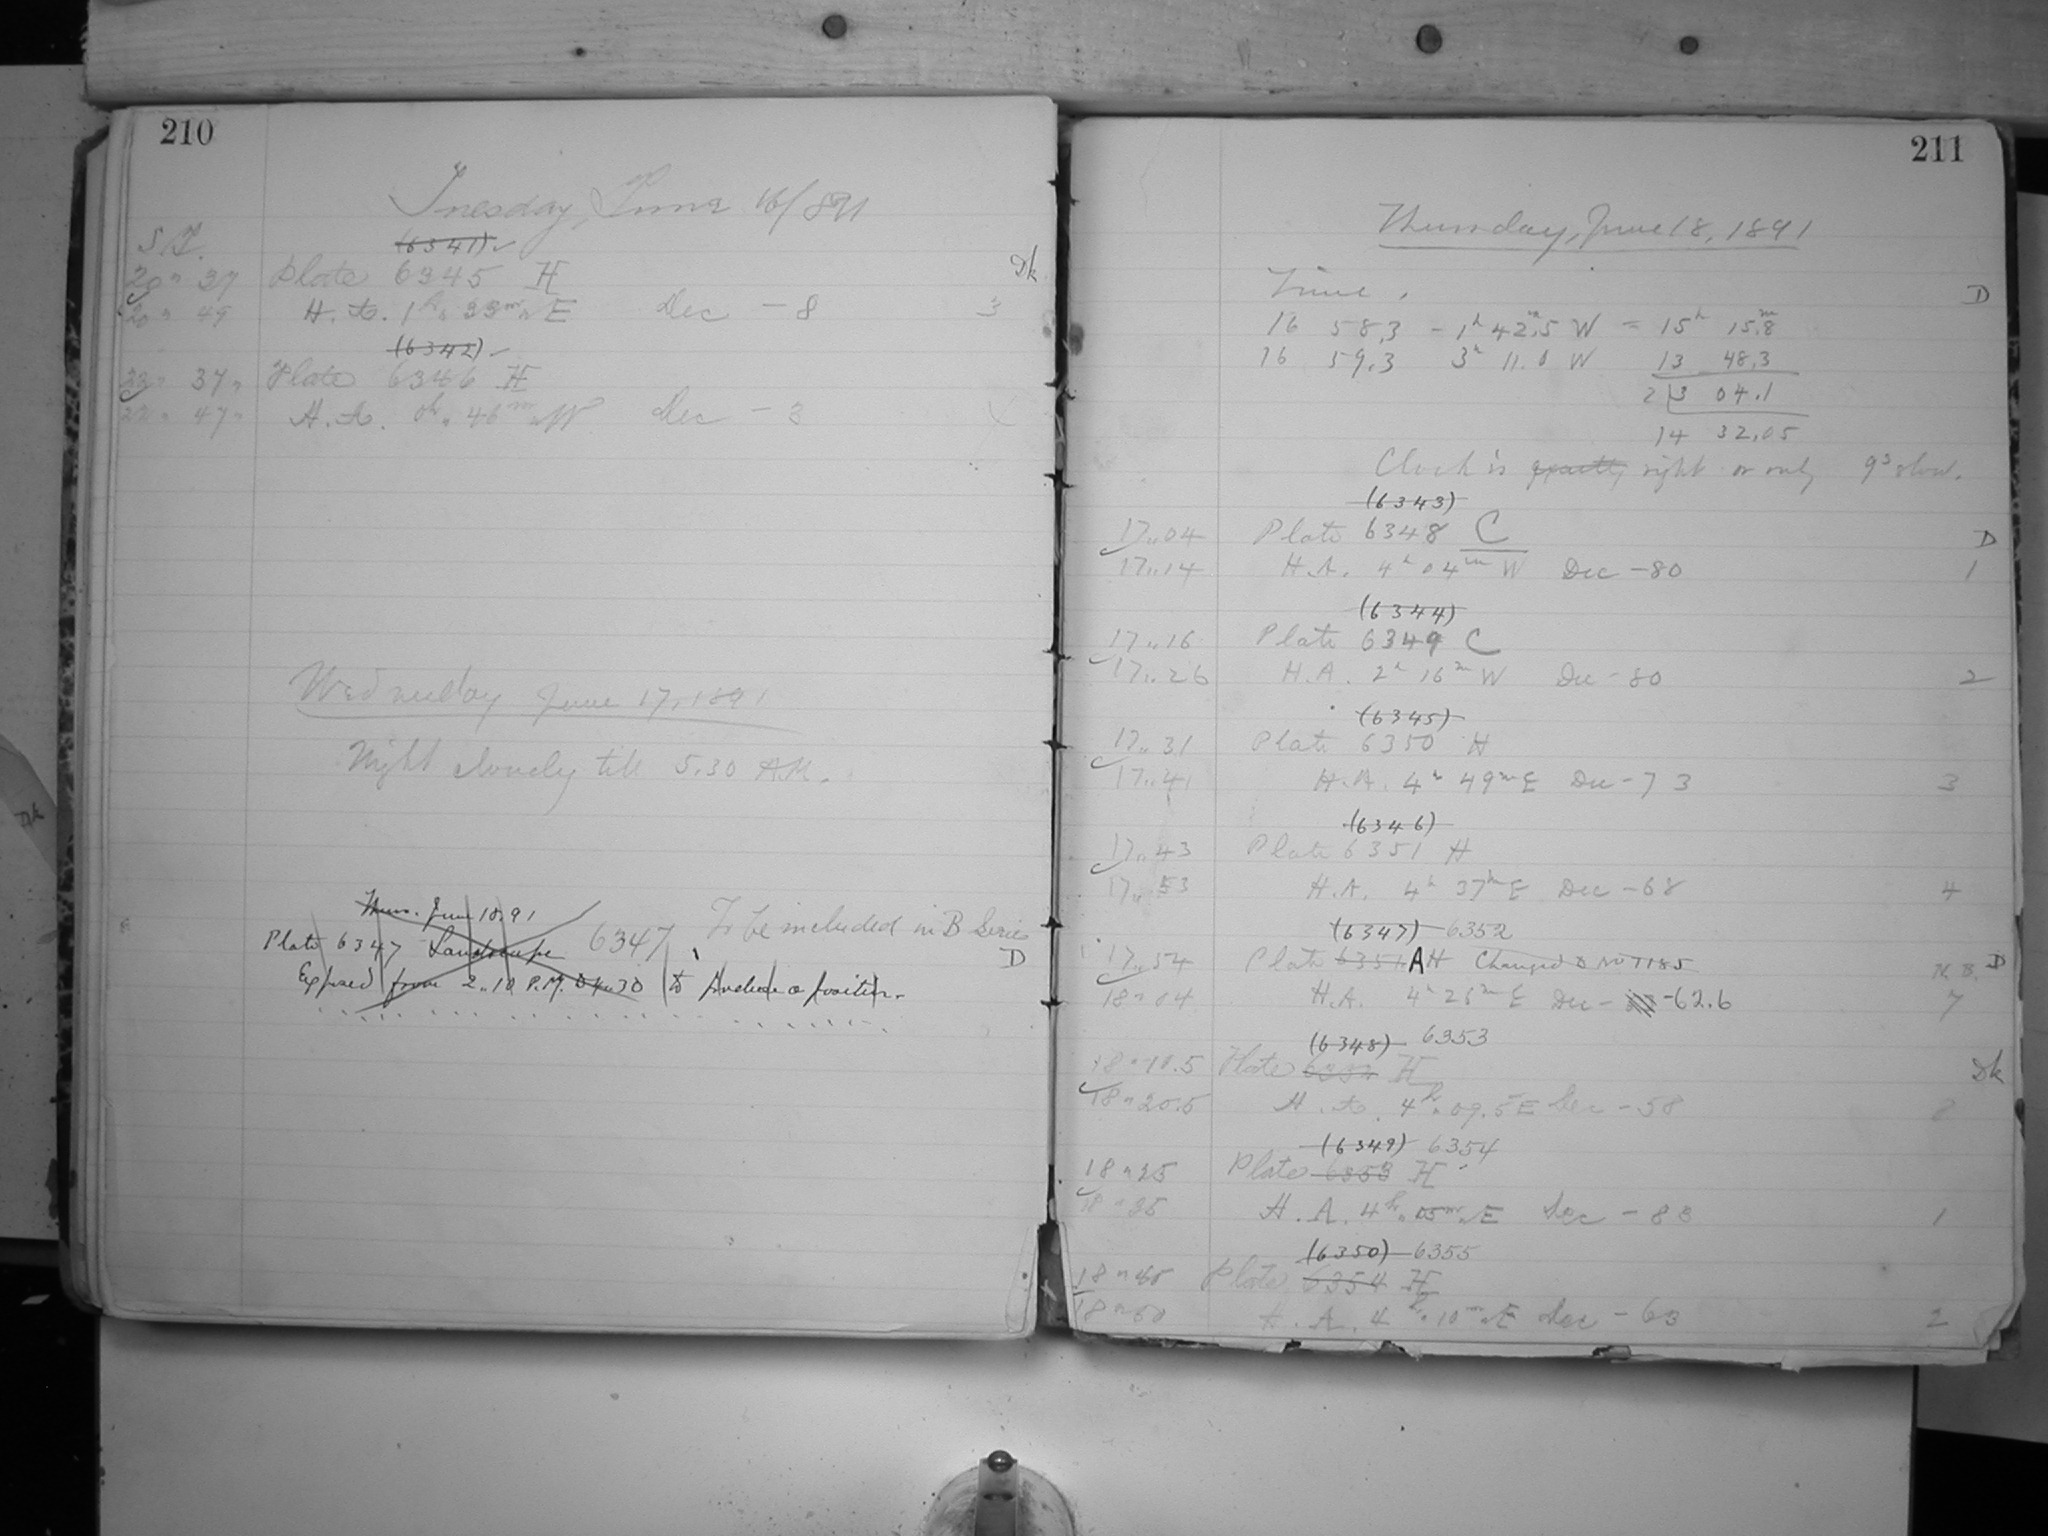 210
Tuesday, June 16/891
S.T.
(6341)
20 " 37 Plate 6345 H Dk
20 " 49 H. A. 1h " 33m " E Dec - 8 3
(6342)
22 " 37 " Plate 6346 H
22 " 47 " H. A. 0h " 46m " W Dec - 3
Wednesday June 17, 1891
Night cloudy till 5.30 AM.
Thurs. June 18. 91
Plate 6347 Landscape 6347 To be included in B Series
Exposed from 2.10 P.M. to 4.30 to include a position. D
211
Thursday, June 18, 1891
Time. D
16 58.3 - 1h 42m.5 W = 15h 15m.8
16 59.3 3h 11.0 W 13 48.3
2 | 3 04.1
14 32.05
Clock is exactly right or only 9s slow.
(6343)
17 " 04 Plate 6348 C D
17 " 14 H.A. 4h 04m W Dec - 80 1
(6344)
17 " 16 Plate 6349 C
17 " 26 H.A. 2h 16m W Dec - 80 2
(6345)
17 " 31 Plate 6350 H
17 " 41 H.A. 4h 49m E Dec - 73 3
(6346)
17 " 43 Plate 6351 H
17 " 53 H.A. 4h 37m E Dec - 68 4
(6347) 6352
17 " 54 Plate 6351 A H Changed to No 1185 N.B. D
18 " 04 H.A. 4h 26m E Dec - -62.6 7
(6348) 6353
18 " 10.5 Plate 6352 H Dk
18 " 20.5 H. A. 4h " 09.5 E Dec - 58
(6349) 6354
18 " 25 Plate 6353 H
18 " 35 H. A. 4h " 05m " E Dec - 83 1
(6350) 6355
18 " 40 Plate 6354 H
18 " 50 H. A. 4h " 10m " E Dec - 63 2
Dk